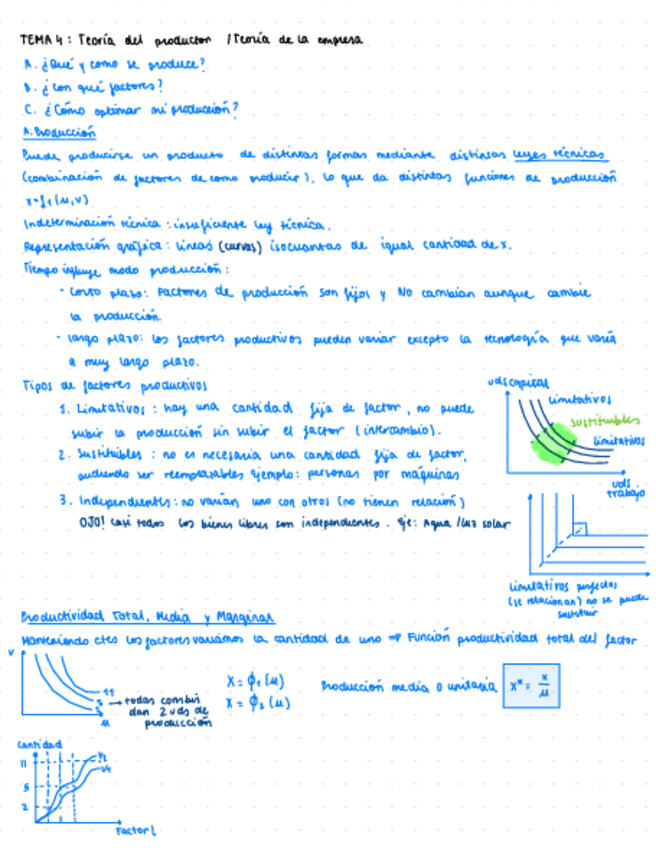 TEMA 4: Teoría del productor / Teoría de la empresa
A. ¿Qué y como se produce?
B. ¿Con qué factores?
C. ¿Cómo optimar mi producción?
A. Producción
Puede producirse un producto de distintas formas mediante distintas leyes técnicas
(combinación de factores de como producir), lo que da distintas funciones de producción
x=f₁(μ,v)
Indeterminación técnica: insuficiente ley técnica.
Representación gráfica: líneas (curvas) isocuantas de igual cantidad de x.
Tiempo influye modo producción:
- corto plazo: Factores de producción son fijos y NO cambian aunque cambie
la producción.
- largo plazo: los factores productivos pueden variar excepto la tecnología que varía
a muy largo plazo.
Tipos de factores productivos
1. Limitativos: hay una cantidad fija de factor, no puede
subir la producción sin subir el factor (intercambio).
2. Sustituibles: no es necesaria una cantidad fija de factor,
pudiendo ser reemplazables ejemplo: personas por máquinas
3. Independientes: no varían uno con otros (no tienen relación)
OJO! casi todos los bienes libres son independientes. Eje: Agua / luz solar
uds capital
limitativos
sustituibles
limitativos
uds
trabajo
limitativos perfectos
(se relacionan) no se puede
sustituir
Productividad Total, Media y Marginal
Manteniendo ctes los factores variamos la cantidad de uno ⇒ Función productividad total del factor
v
11
5
2
μ
→ todas combis
dan 2 uds de
producción
X = ϕ₁(μ)
X = ϕ₂(μ)
Producción media o unitaria
x* = x/μ
Cantidad
11
5
2
V₂
V₁
Factor L